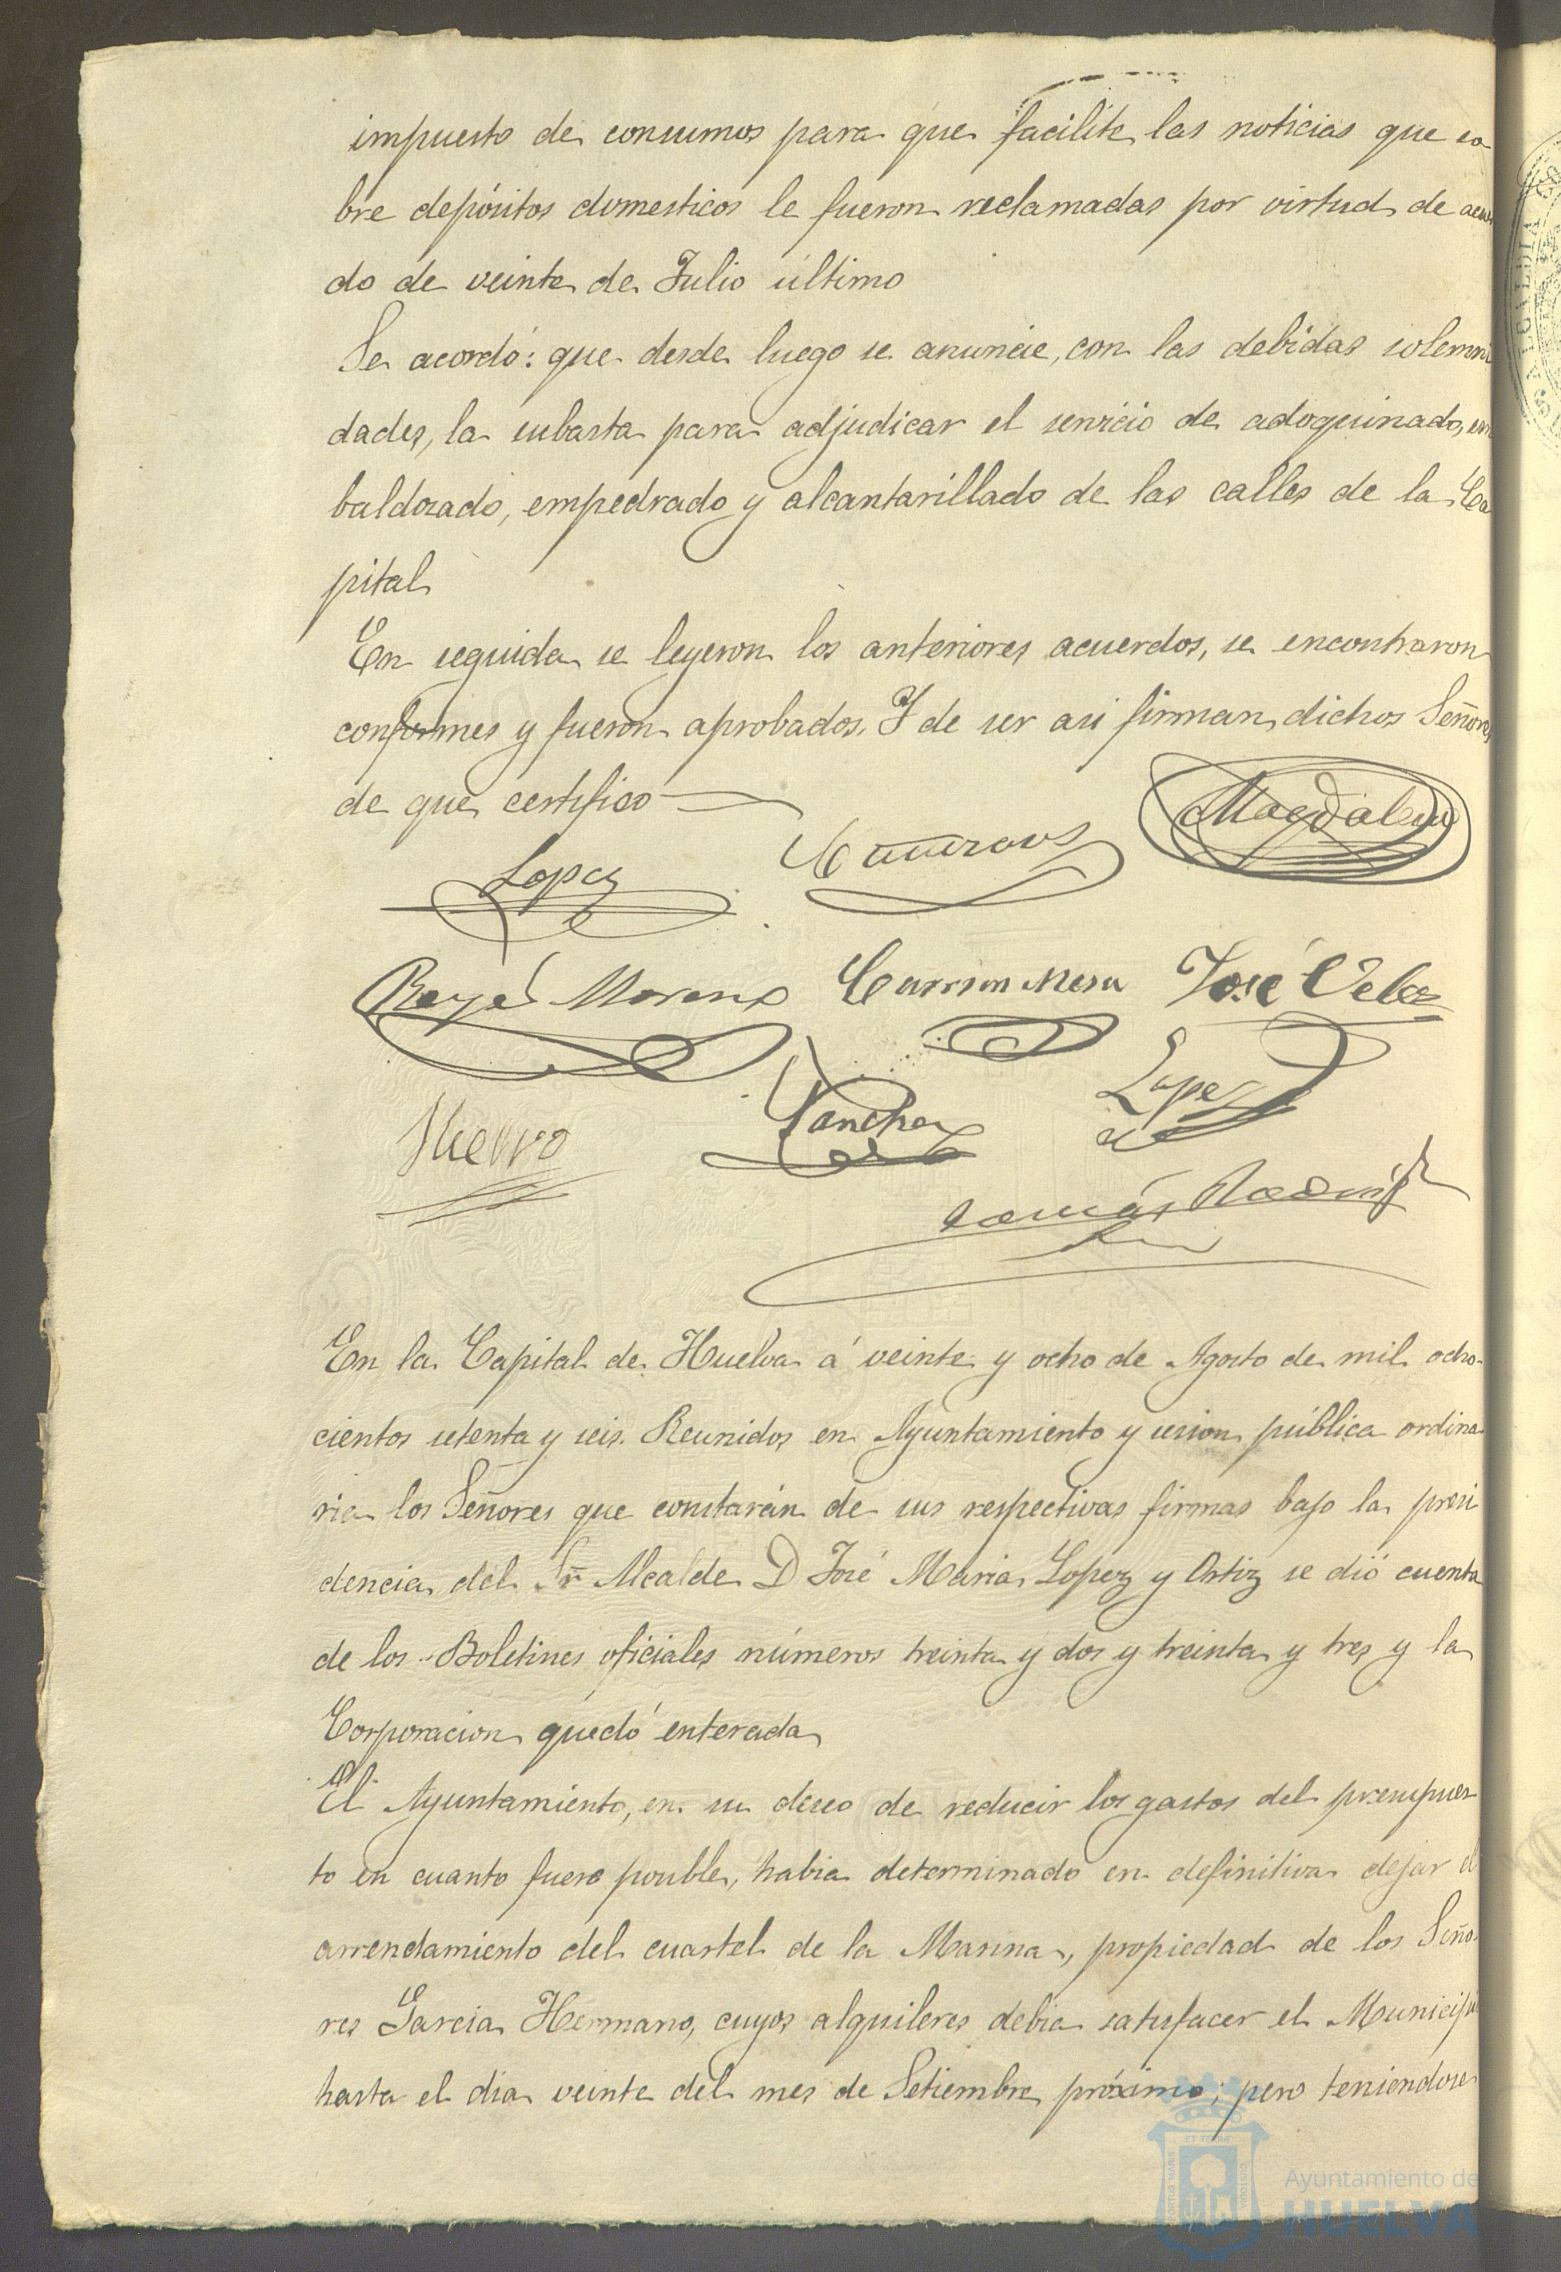 impuesto de consumos para que facilite las noticias que so
bre depósitos domesticos le fueron reclamadas por virtud de acuer
do de veinte de Julio último
Se acordó: que desde luego se anuncie, con las debidas solemni
dades, la subasta para adjudicar el servicio de adoquinado, em
baldozado, empedrado y alcantarillado de las calles de la Ca
pital
En seguida se leyeron los anteriores acuerdos, se encontraron
conformes y fueron aprobados. Y de ser asi firman dichos Señores
de que certifico
Magdalena
Lopez
Reyes Moreno Carrion Mesa José Velez
Lopez
Hierro Sanchez
Tomás Rodrig
En la Capital de Huelva á veinte y ocho de Agosto de mil ocho-
cientos setenta y seis. Reunidos en Ayuntamiento y sesion pública ordina
ria los Señores que constarán de sus respectivas firmas bajo la presi
dencia del Sr Alcalde D José Maria Lopez y Ortiz se dió cuenta
de los Boletines oficiales números treinta y dos y treinta y tres y la
Corporacion quedó enterada
El Ayuntamiento, en su deseo de reducir los gastos del presupues
to en cuanto fuere posible, habia determinado en definitiva dejar el
arrendamiento del cuartel de la Marina, propiedad de los Seño
res Garcia Hermano, cuyos alquileres debia satisfacer el Municipio
hasta el dia veinte del mes de Setiembre próximo; pero teniendose
Ayuntamiento de
HUELVA